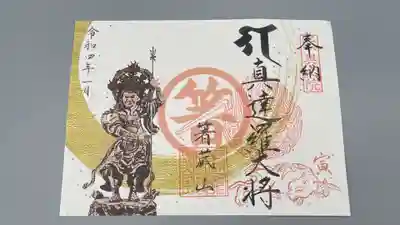 奉納
真達羅大将
箸蔵山
箸
寅
令和四年一月